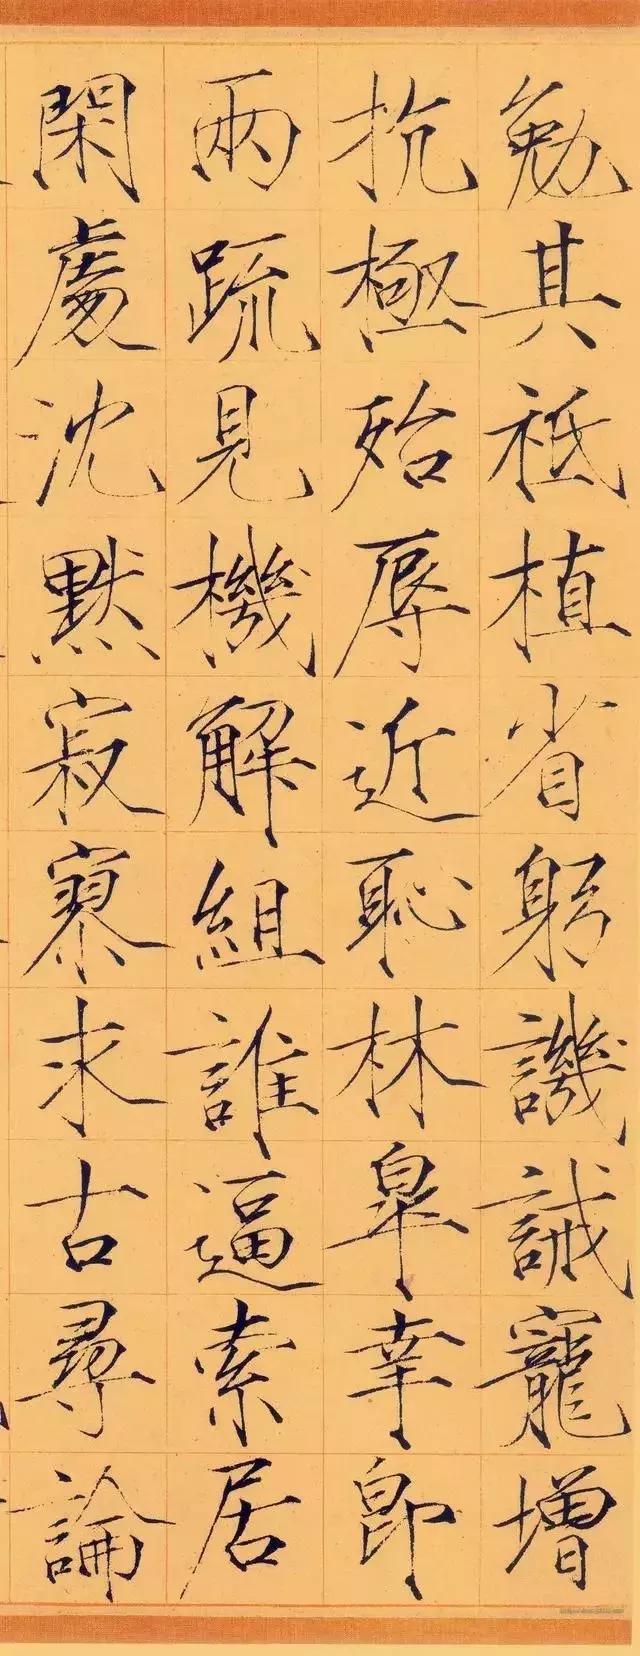 勉其祗植省躬譏誡寵增
抗極殆辱近恥林皐幸即
兩疏見機解組誰逼索居
閑處沈默寂寥求古尋論